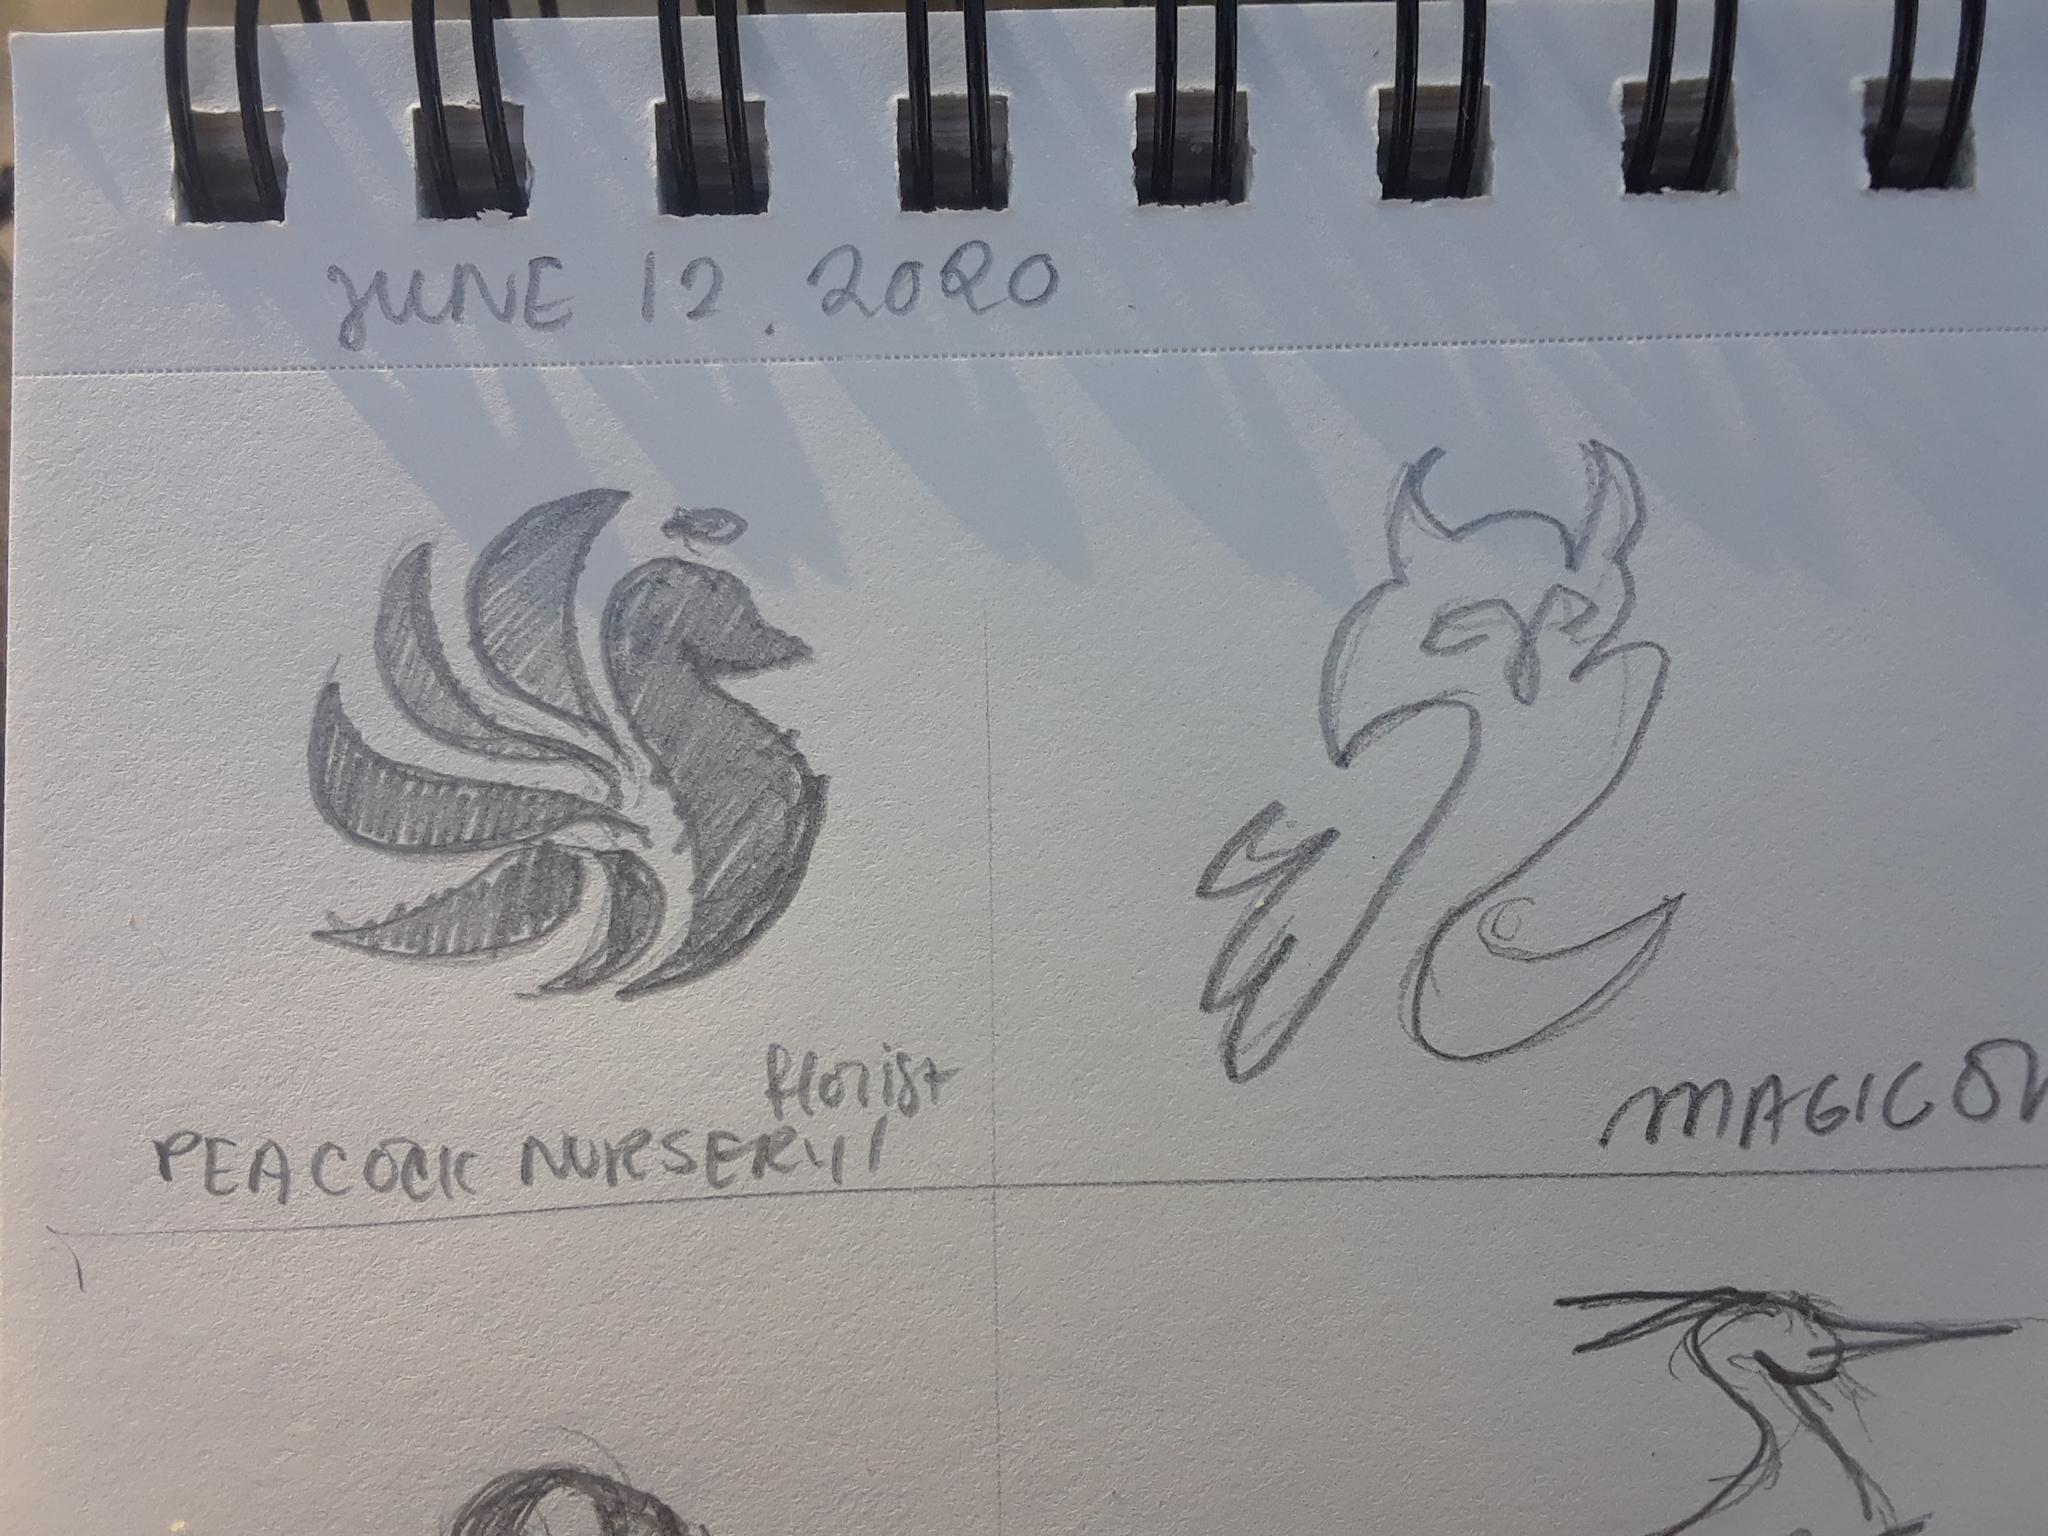 JUNE 12. 2020
florist
PEACOCK NURSERY